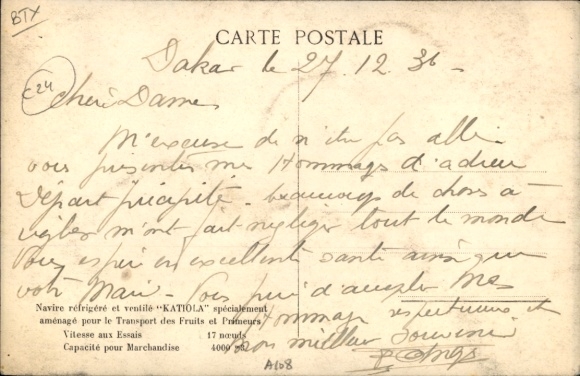 BTX
CARTE POSTALE
Dakar le 27.12.36 -
C24
Cheré Dames
M'excuse de n'etu pas aller
vous présenter mes Hommages d'adieu
Départ précipité - beaucoup de choses à
régler m'ont fait négliger tout le monde
Vous espère en excellente santé ainsi que
votre Mari - Vous prie d'accepter Mes
Hommages respectueux et
mon meilleur Souvenir
Navire réfrigéré et ventilé "KATIOLA" spécialement
aménagé pour le Transport des Fruits et Primeurs
Vitesse aux Essais 17 nœuds
Capacité pour Marchandise 4000 m3
A108